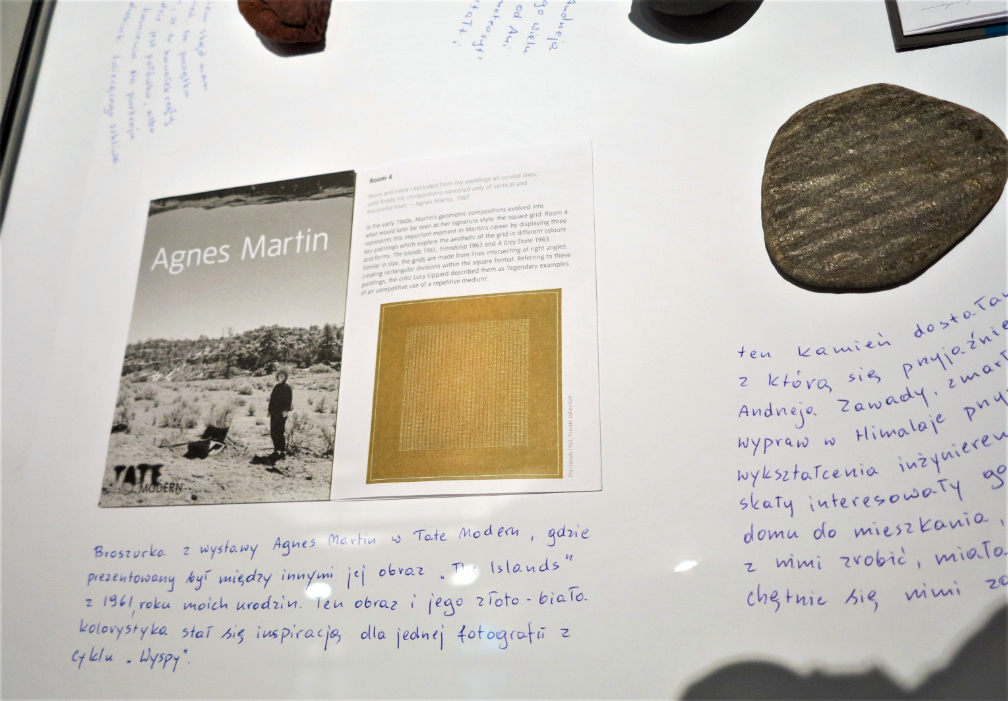 Agnes Martin
TATE
MODERN
Room 4
'More and more I excluded from my paintings all curved lines,
until finally my compositions consisted only of vertical and
horizontal lines.' – Agnes Martin, 1967
In the early 1960s, Martin's geometric compositions evolved into
what would later be seen as her signature style: the square grid. Room 4
represents this important moment in Martin's career by displaying three
key paintings which explore the aesthetic of the grid in different colours
and forms: The Islands 1961, Friendship 1963 and A Grey Stone 1963.
Similar in size, the grids are made from lines intersecting at right angles,
creating rectangular divisions within the square format. Referring to these
paintings, the critic Lucy Lippard described them as 'legendary examples
of an unrepetitive use of a repetitive medium'.
The Islands 1961, Private collection
Broszurka z wystawy Agnes Martin w Tate Modern, gdzie
prezentowany był między innymi jej obraz „The Islands"
z 1961, roku moich urodzin. Ten obraz i jego złoto-biało.
kolorystyka stał się inspiracją dla jednej fotografii z
cyklu „Wyspy".
ten kamień dostała
z którą się przyjaźnię
Andrzeja Zawady, zmarł
wypraw w Himalaje przy
wykształcenia inżynierem
skały interesowały go
domu do mieszkania
z nimi zrobić, miała
chętnie się nimi za
Andrzeja
go wielu
od Ani,